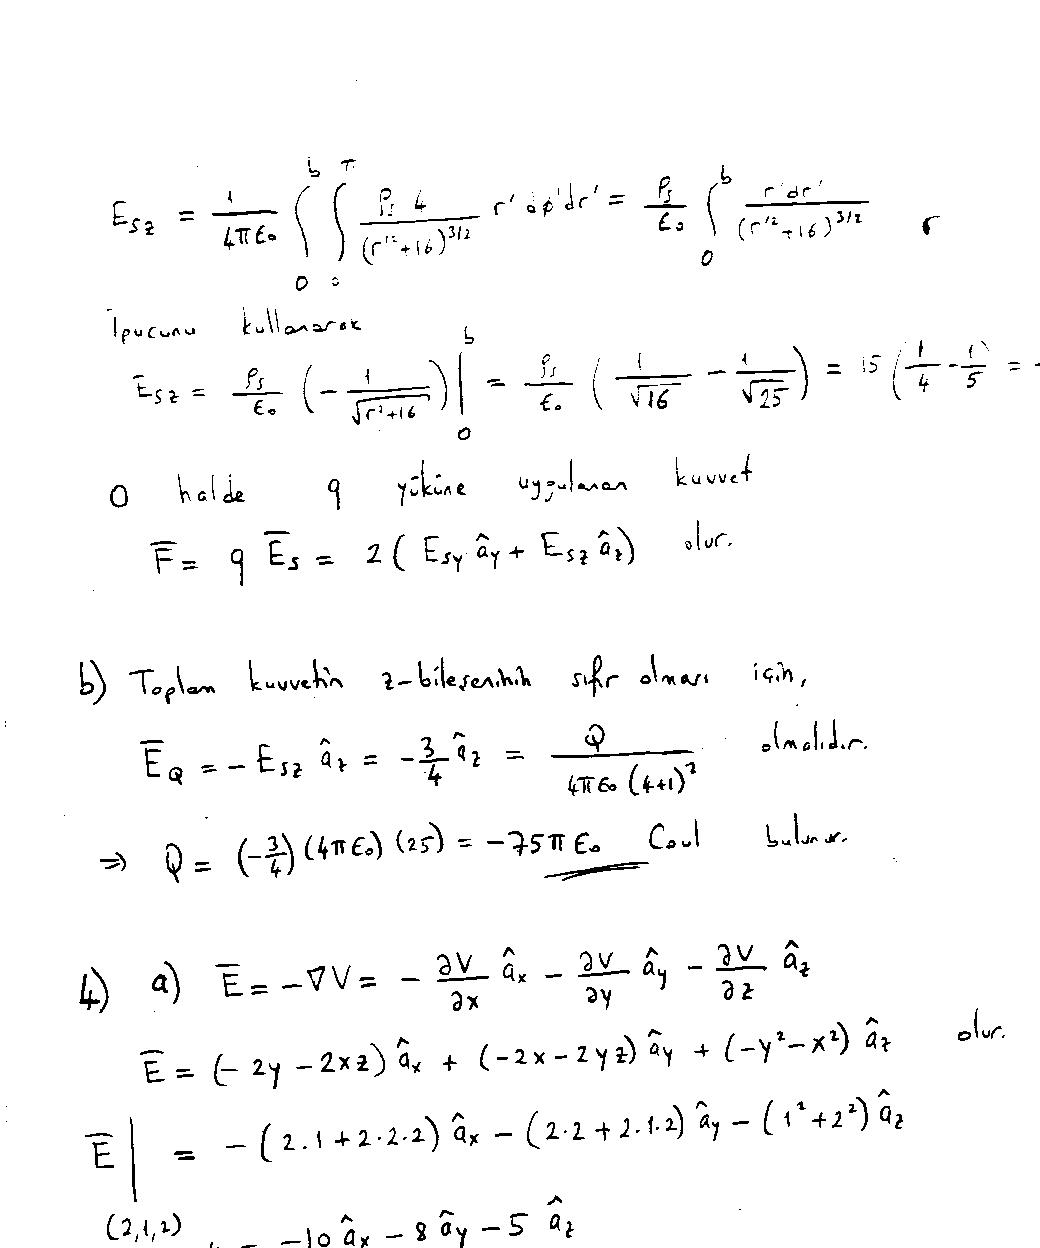 E_sz = 1/(4πε₀) ∫₀ᵇ ∫₀^π ρ_s 4/(r'²+16)^(3/2) r' dφ' dr' = ρ_s/ε₀ ∫₀ᵇ r' dr'/(r'²+16)^(3/2) r
İpucunu kullanarak
E_sz = ρ_s/ε₀ (-1/√(r²+16)) |₀ᵇ = ρ_s/ε₀ (1/√16 - 1/√25) = 15 (1/4 - 1/5 =
O halde q yüküne uygulanan kuvvet
F̄ = q Ē_s = 2 ( E_sy â_y + E_sz â_z) olur.
b) Toplam kuvvetin z-bileşeninin sıfır olması için,
Ē_Q = - E_sz â_z = -3/4 â_z = Q/(4πε₀ (4+1)²) olmalıdır.
⇒ Q = (-3/4) (4πε₀) (25) = -75πε₀ Coul bulunur.
4) a) Ē = -∇V = - ∂V/∂x â_x - ∂V/∂y â_y - ∂V/∂z â_z
Ē = (-2y - 2xz) â_x + (-2x - 2yz) â_y + (-y² - x²) â_z olur.
Ē |(2,1,2) = - (2.1 + 2.2.2) â_x - (2.2 + 2.1.2) â_y - (1² + 2²) â_z
= -10 â_x - 8 â_y - 5 â_z